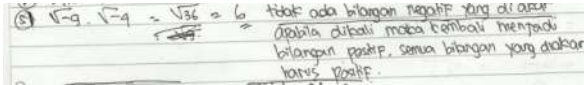 ⑤ √-9 . √-4 = √36 = 6 tidak ada bilangan negatif yang di akar
apabila dikali maka kembali menjadi
bilangan positif, semua bilangan yang diakar
harus positif.